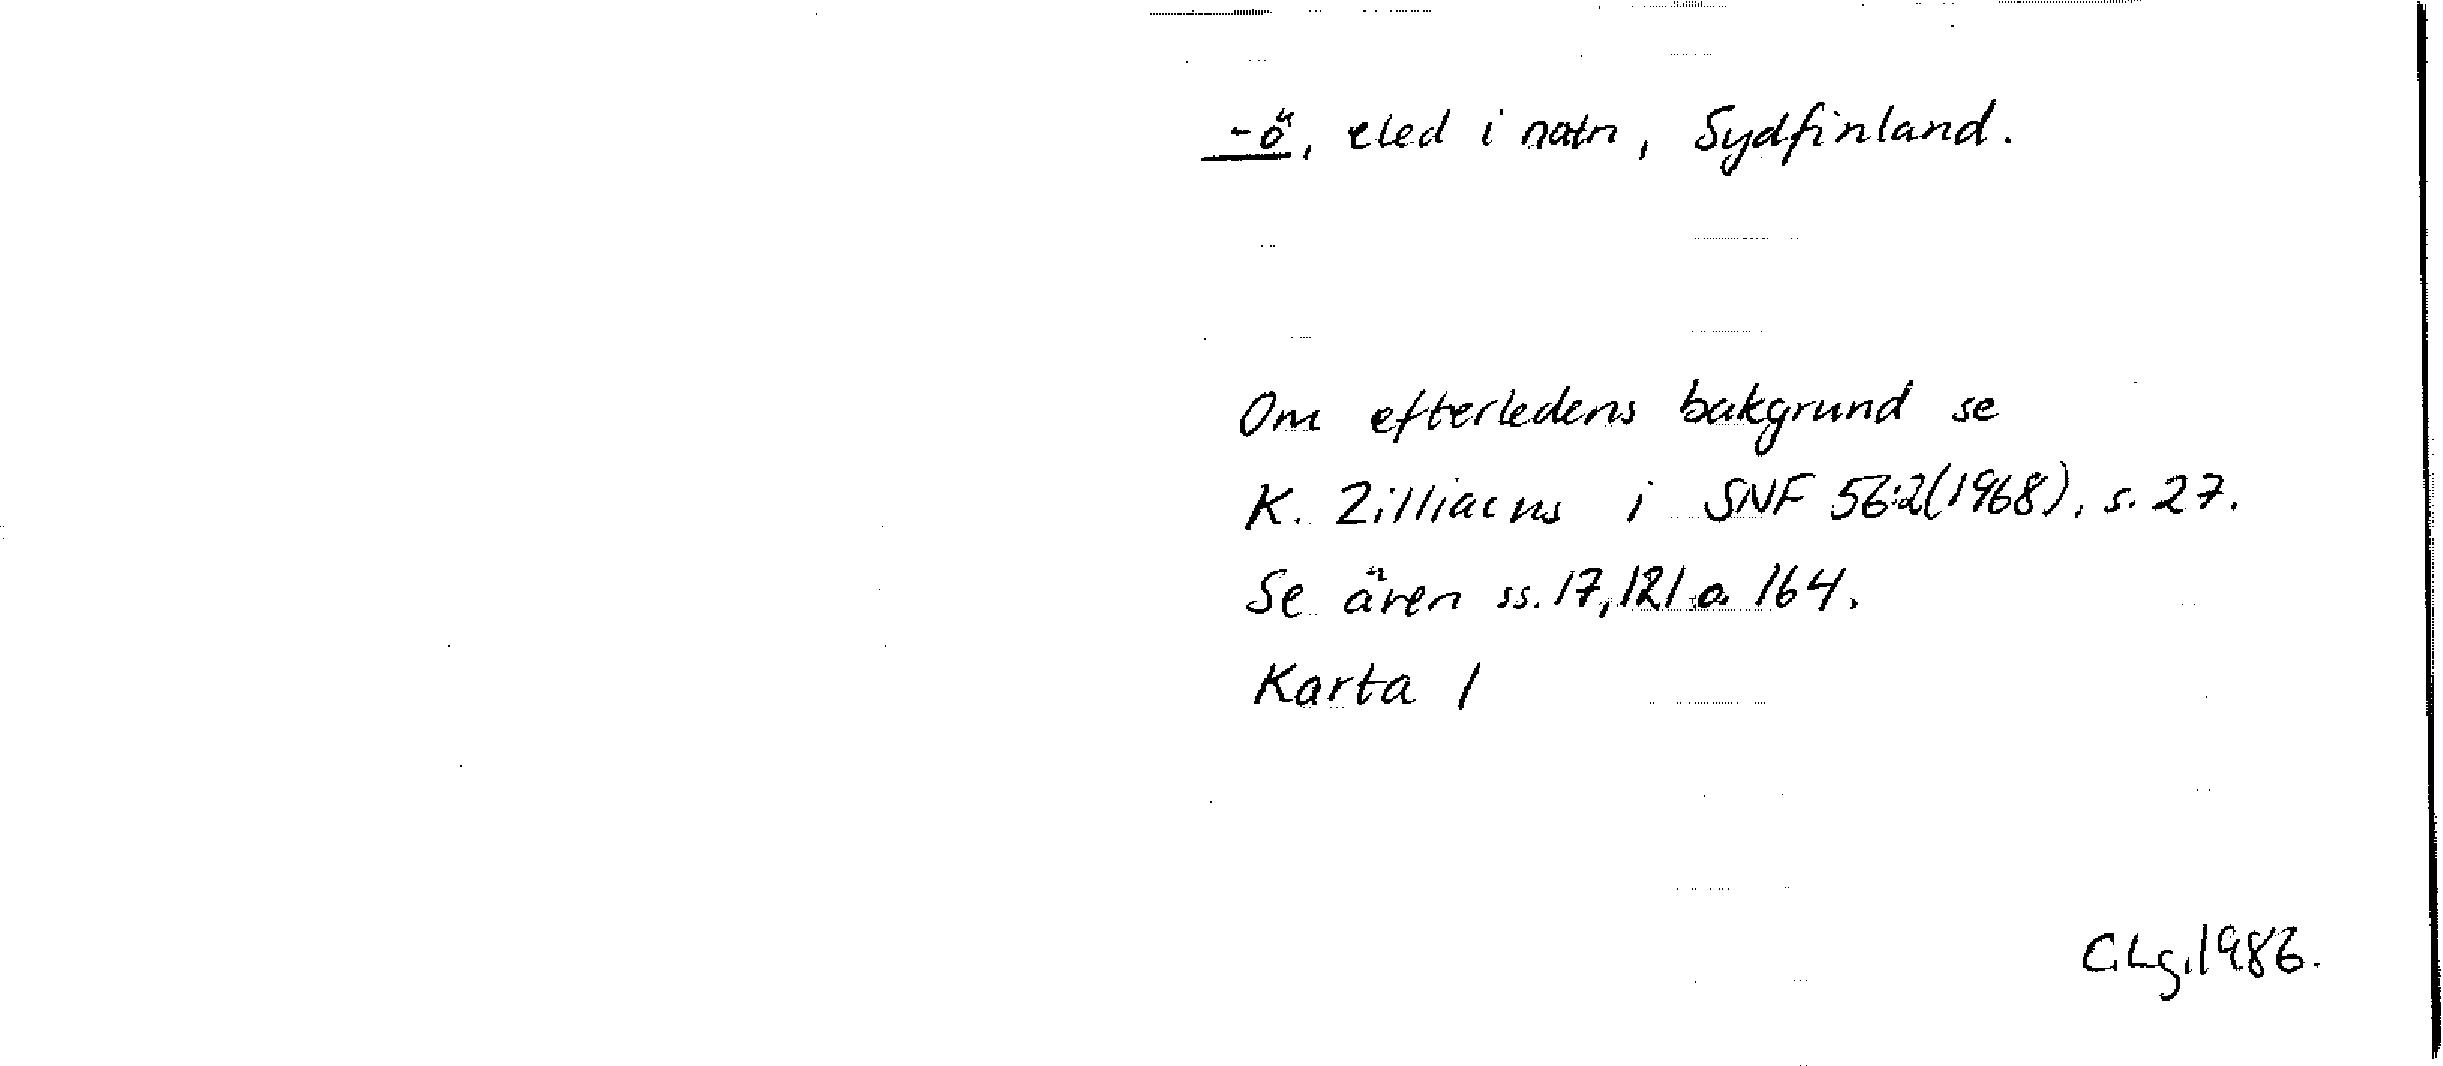 -ö, eled i natn, Sydfinland.
Om efterledens bakgrund se
K. Zilliacus i SNF 56:2(1968), s. 27.
Se även ss. 17, 121 o. 164.
Karta 1
C.Lg. 1986.